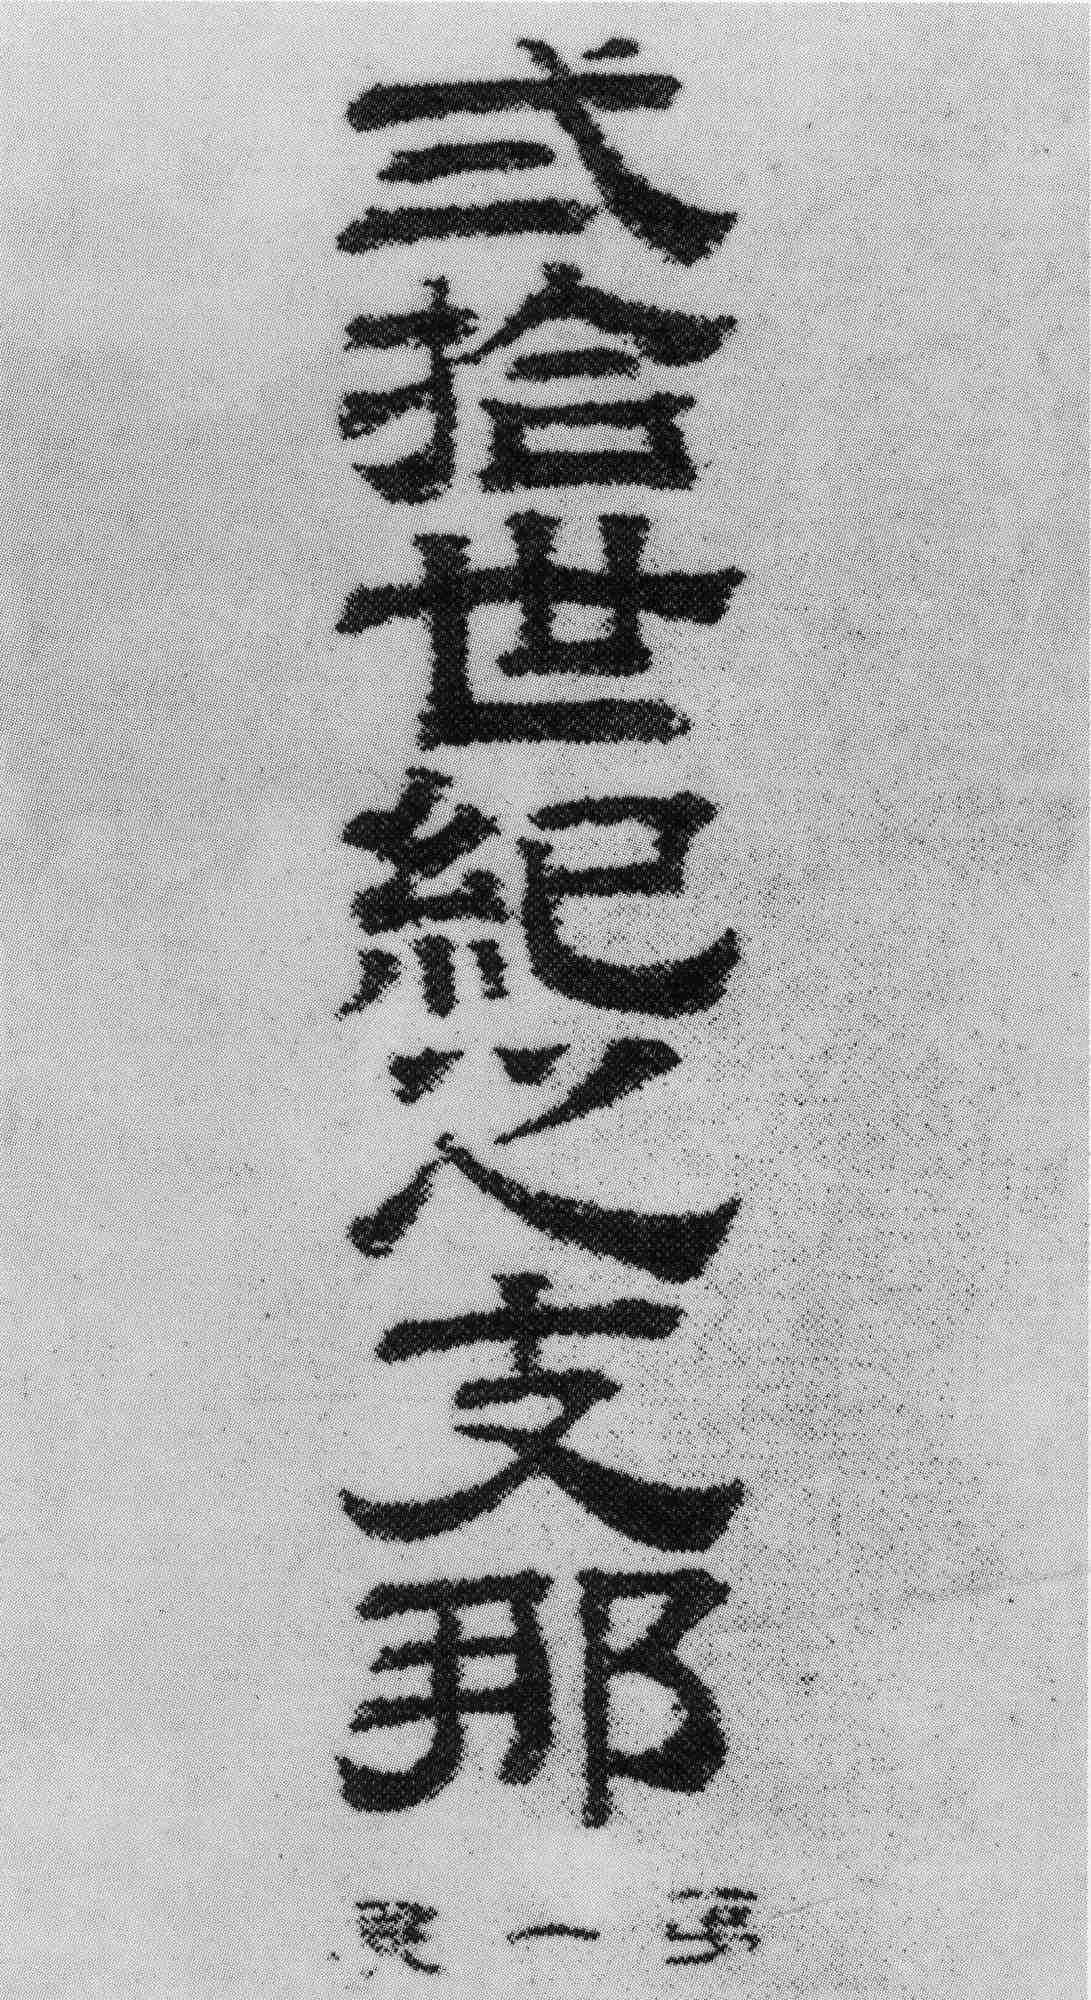 弍拾世紀之支那
第一號